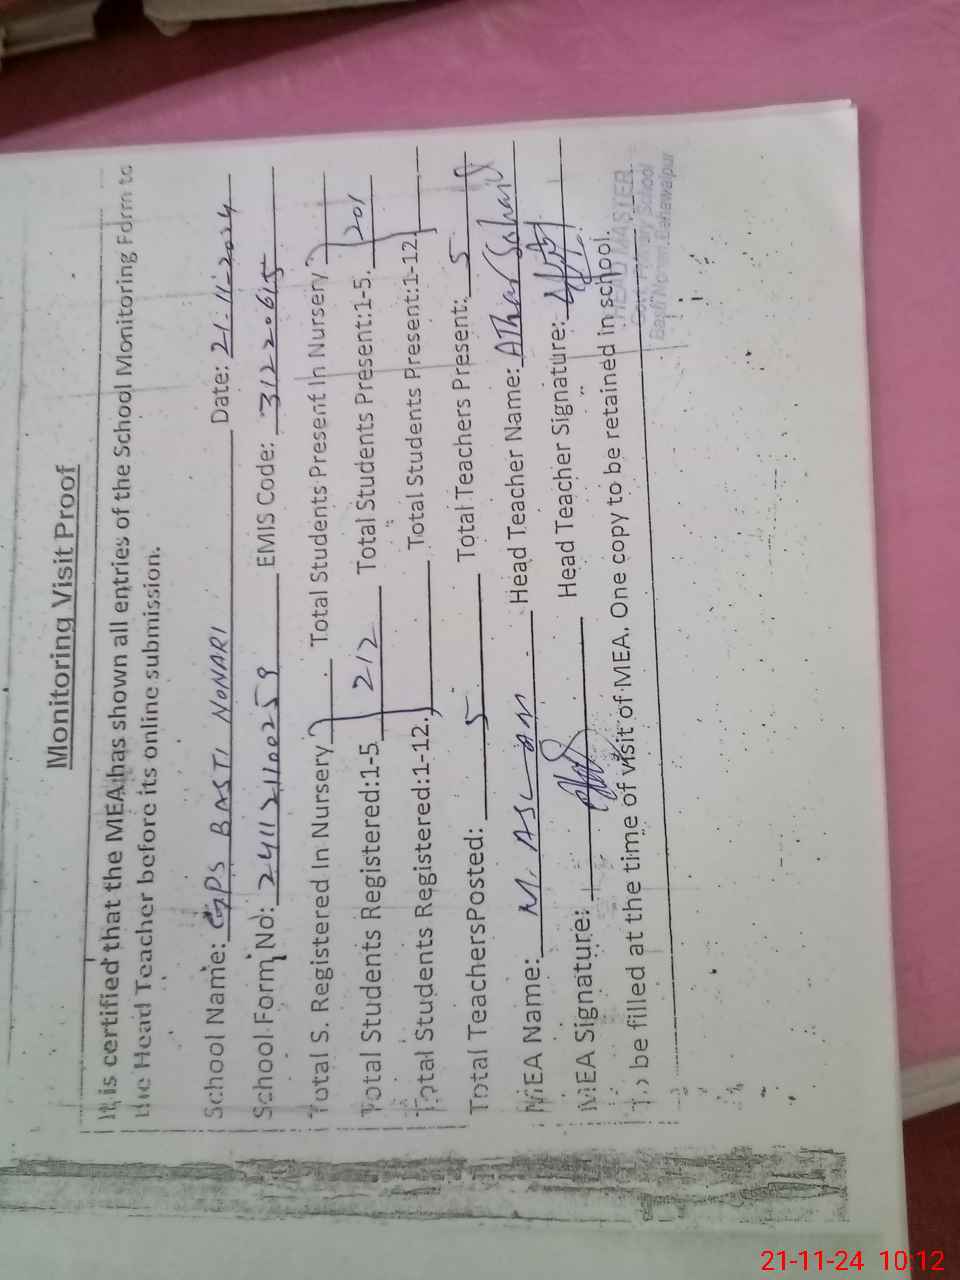 Monitoring Visit Proof
It is certified that the MEA has shown all entries of the School Monitoring Form to
the Head Teacher before its online submission.
School Name: GPS BASTI NONARI Date: 21-11-2024
School Form No: 241121100259 EMIS Code: 31220615
Total S. Registered In Nursery Total Students Present In Nursery
Total Students Registered:1-5. 212 Total Students Present:1-5. 201
Total Students Registered:1-12. Total Students Present:1-12
Total TeachersPosted: 5 Total Teachers Present: 5
MEA Name: M. ASLAM Head Teacher Name: AThar Sohail
MEA Signature: Head Teacher Signature:
To be filled at the time of visit of MEA. One copy to be retained in school.
HEAD MASTER
Govt. Primary School
Basti Nonari Bahawalpur
21-11-24 10:12